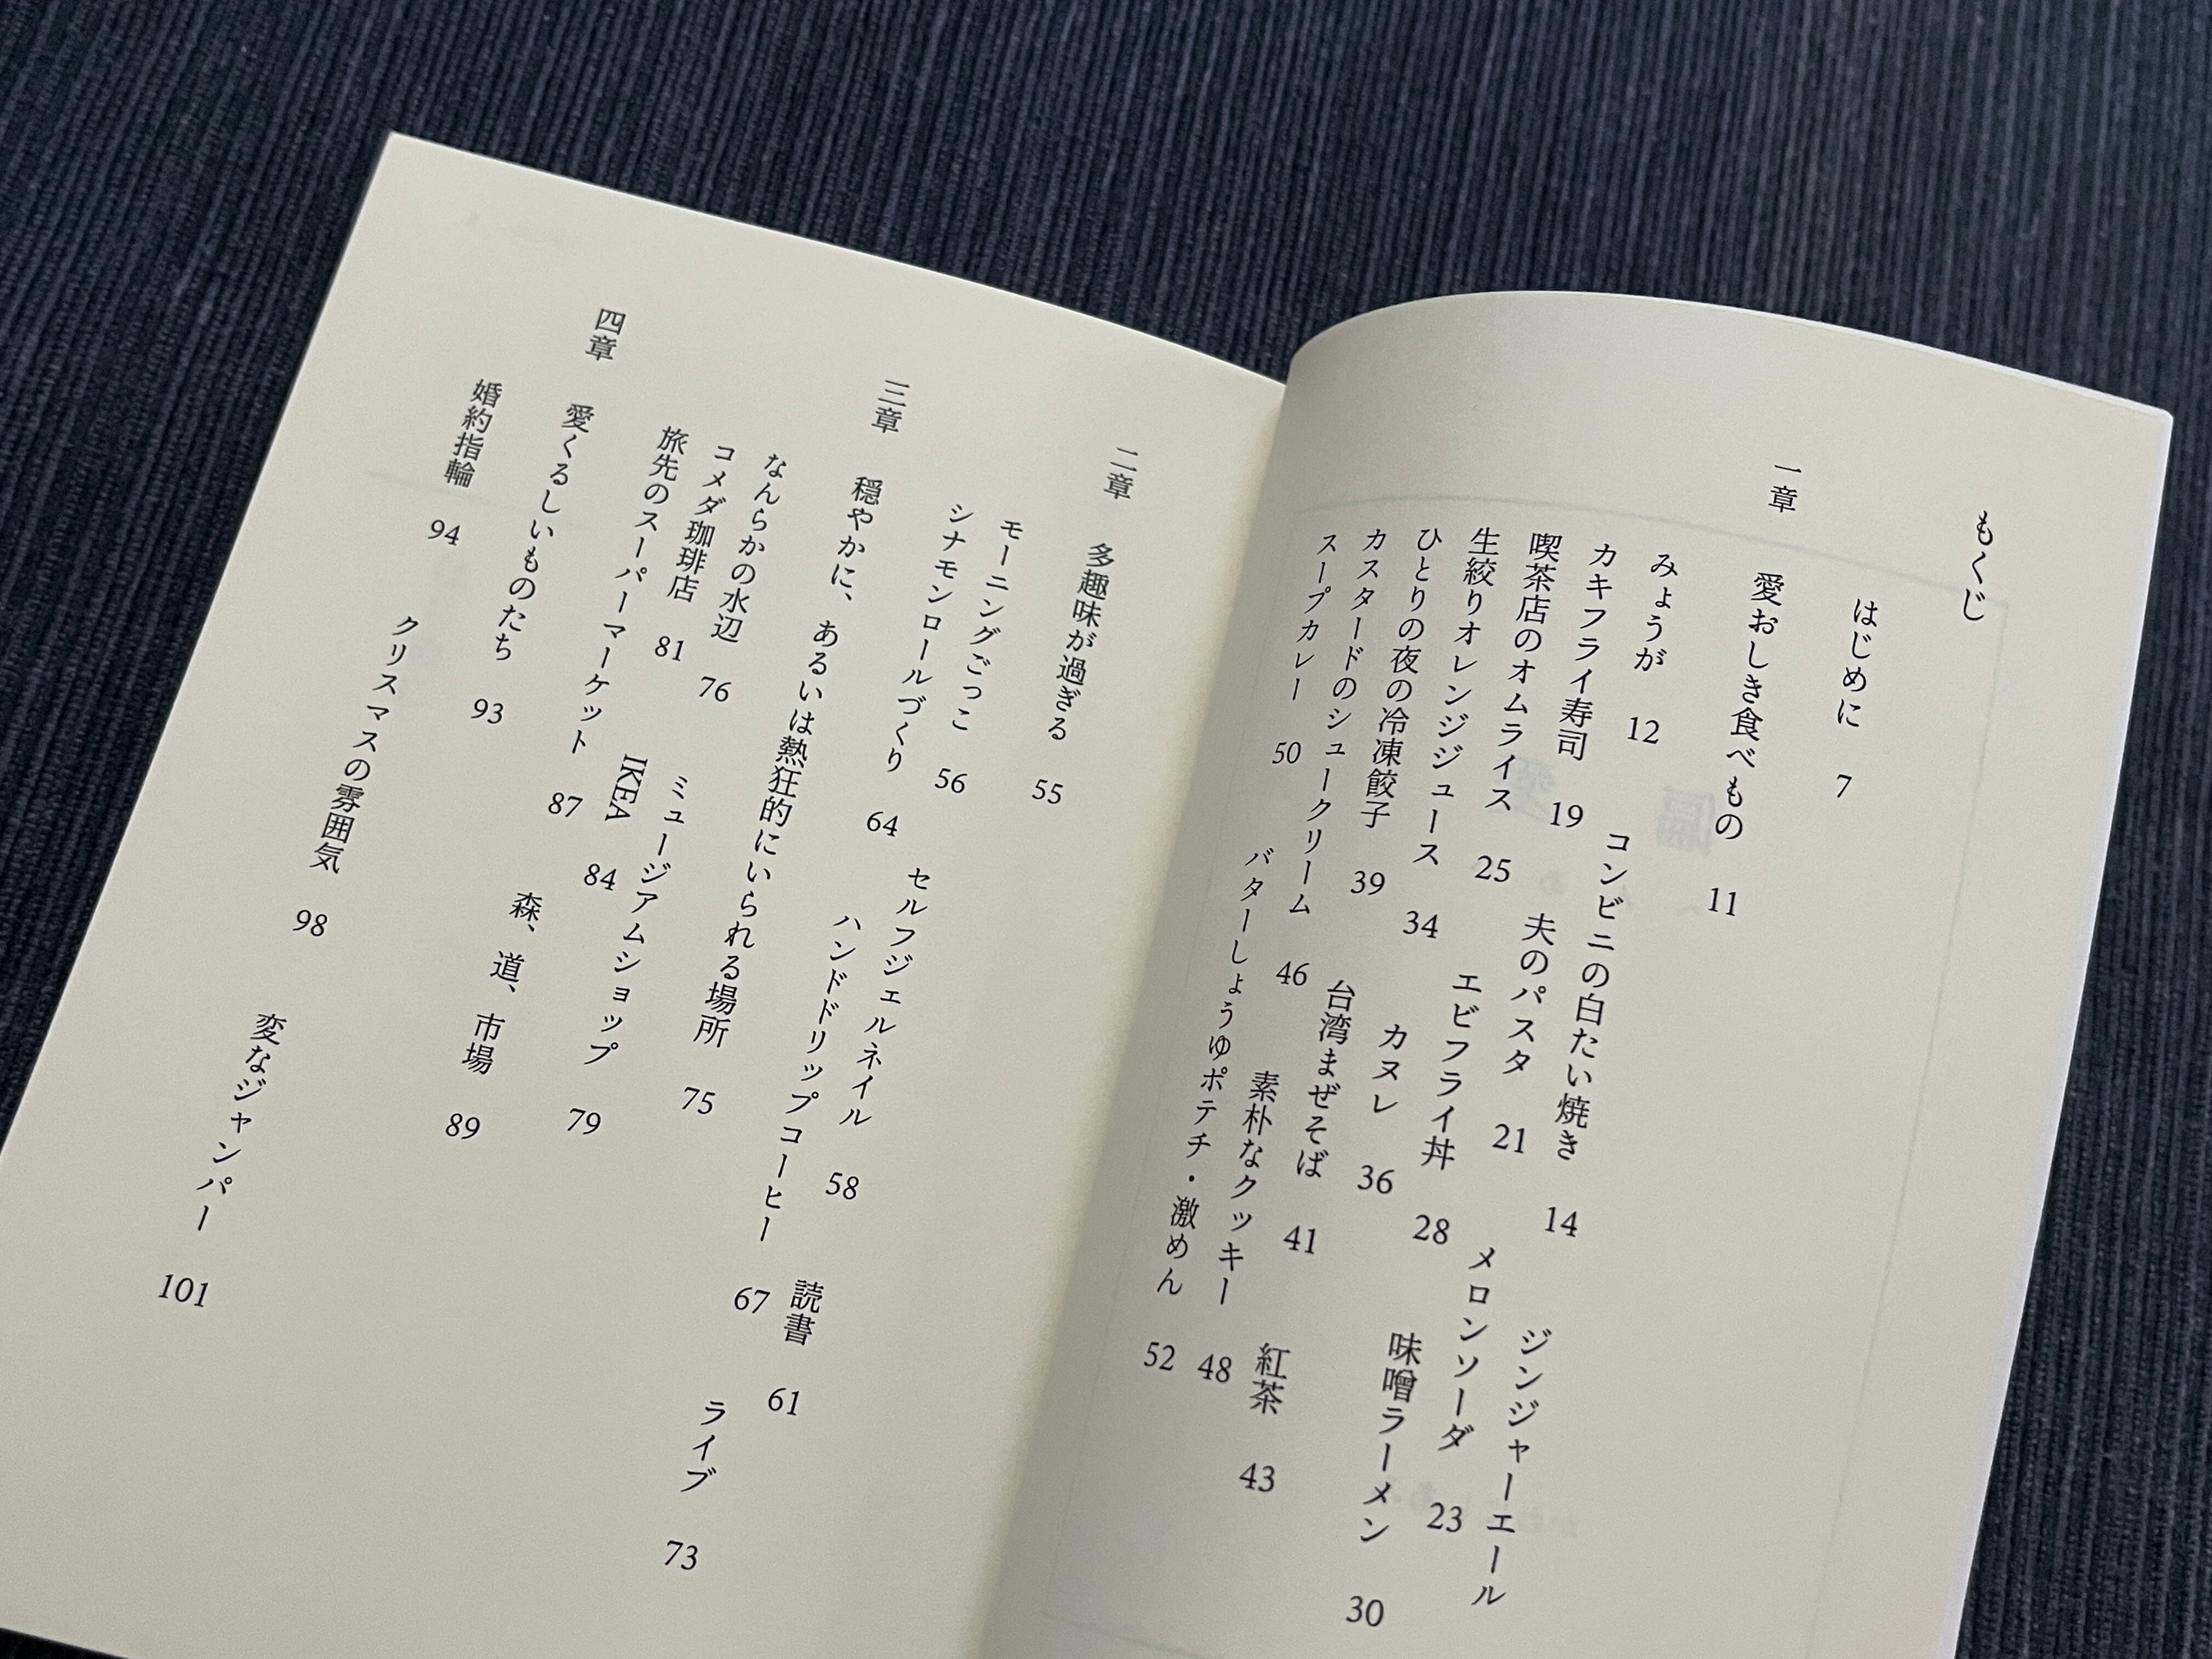 もくじ
はじめに 7
一章 愛おしき食べもの 11
みょうが 12 コンビニの白たい焼き 14 ジンジャーエール
カキフライ寿司 19 夫のパスタ 21 メロンソーダ 23
喫茶店のオムライス 25 エビフライ丼 28 味噌ラーメン 30
生絞りオレンジジュース 34 カヌレ 36
ひとりの夜の冷凍餃子 39 台湾まぜそば 41 紅茶 43
カスタードのシュークリーム 46 素朴なクッキー 48
スープカレー 50 バターしょうゆポテチ・激めん 52
二章 多趣味が過ぎる 55
モーニングごっこ 56 セルフジェルネイル 58 読書 61
シナモンロールづくり 64 ハンドドリップコーヒー 67 ライブ 73
三章 穏やかに、あるいは熱狂的にいられる場所 75
なんらかの水辺 76 ミュージアムショップ 79
コメダ珈琲店 81 IKEA 84
旅先のスーパーマーケット 87 森、道、市場 89
四章 愛くるしいものたち 93
婚約指輪 94 クリスマスの雰囲気 98 変なジャンパー 101